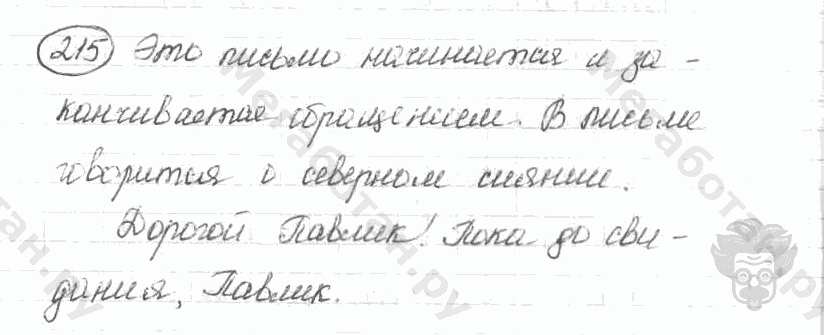 215 Это письмо начинается и за-
канчивается обращением. В письме
говорится о северном сиянии.
Дорогой Павлик! Пока до сви-
дания, Павлик.